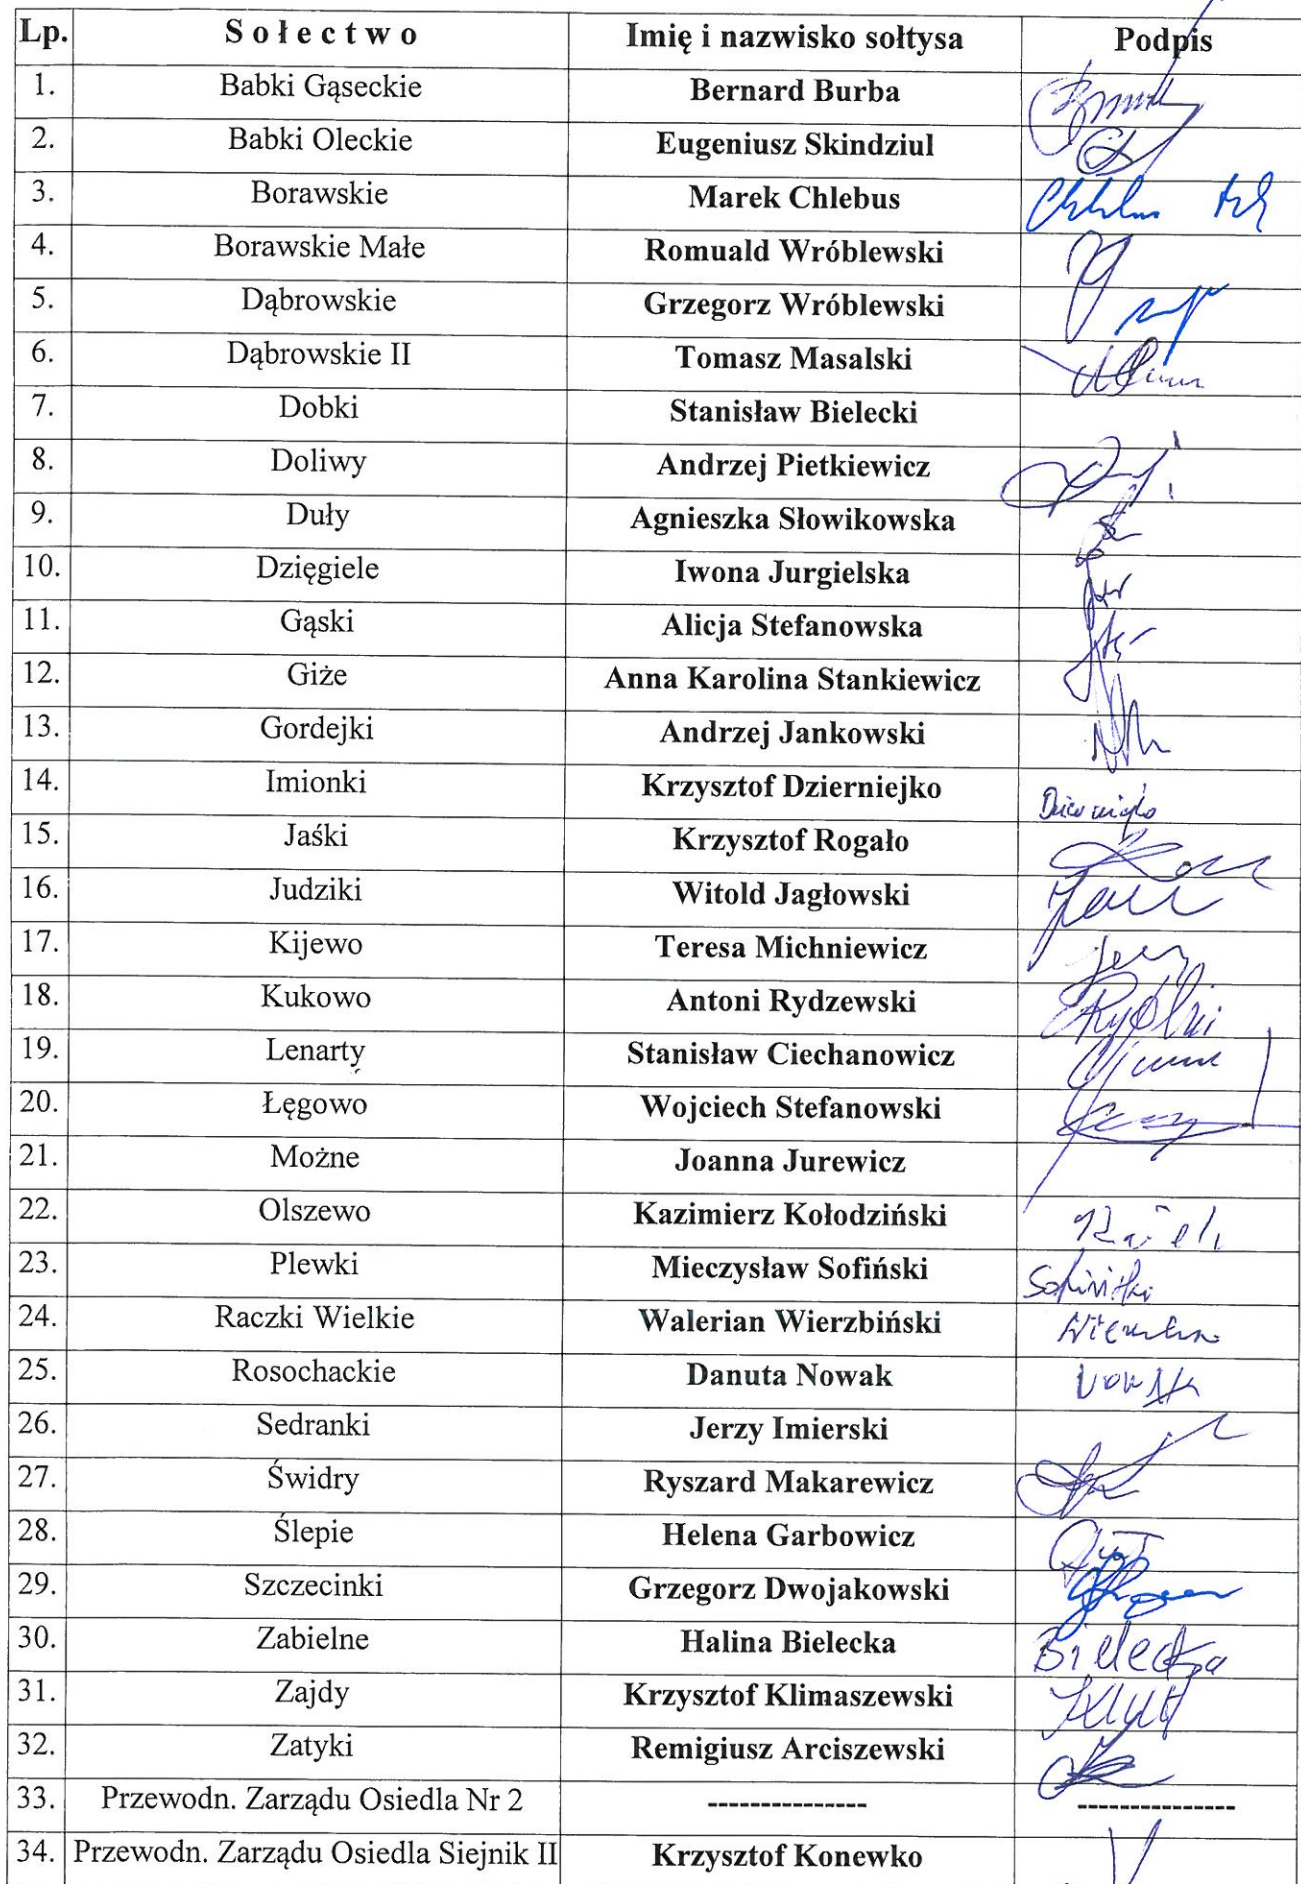 Lp. Sołectwo Imię i nazwisko sołtysa Podpis
1. Babki Gąseckie Bernard Burba
2. Babki Oleckie Eugeniusz Skindziul
3. Borawskie Marek Chlebus
4. Borawskie Małe Romuald Wróblewski
5. Dąbrowskie Grzegorz Wróblewski
6. Dąbrowskie II Tomasz Masalski
7. Dobki Stanisław Bielecki
8. Doliwy Andrzej Pietkiewicz
9. Duły Agnieszka Słowikowska
10. Dzięgiele Iwona Jurgielska
11. Gąski Alicja Stefanowska
12. Giże Anna Karolina Stankiewicz
13. Gordejki Andrzej Jankowski
14. Imionki Krzysztof Dzierniejko
15. Jaśki Krzysztof Rogało
16. Judziki Witold Jagłowski
17. Kijewo Teresa Michniewicz
18. Kukowo Antoni Rydzewski
19. Lenarty Stanisław Ciechanowicz
20. Łęgowo Wojciech Stefanowski
21. Możne Joanna Jurewicz
22. Olszewo Kazimierz Kołodziński
23. Plewki Mieczysław Sofiński
24. Raczki Wielkie Walerian Wierzbiński
25. Rosochackie Danuta Nowak
26. Sedranki Jerzy Imierski
27. Świdry Ryszard Makarewicz
28. Ślepie Helena Garbowicz
29. Szczecinki Grzegorz Dwojakowski
30. Zabielne Halina Bielecka Bielecka
31. Zajdy Krzysztof Klimaszewski
32. Zatyki Remigiusz Arciszewski
33. Przewodn. Zarządu Osiedla Nr 2 --------------- ---------------
34. Przewodn. Zarządu Osiedla Siejnik II Krzysztof Konewko